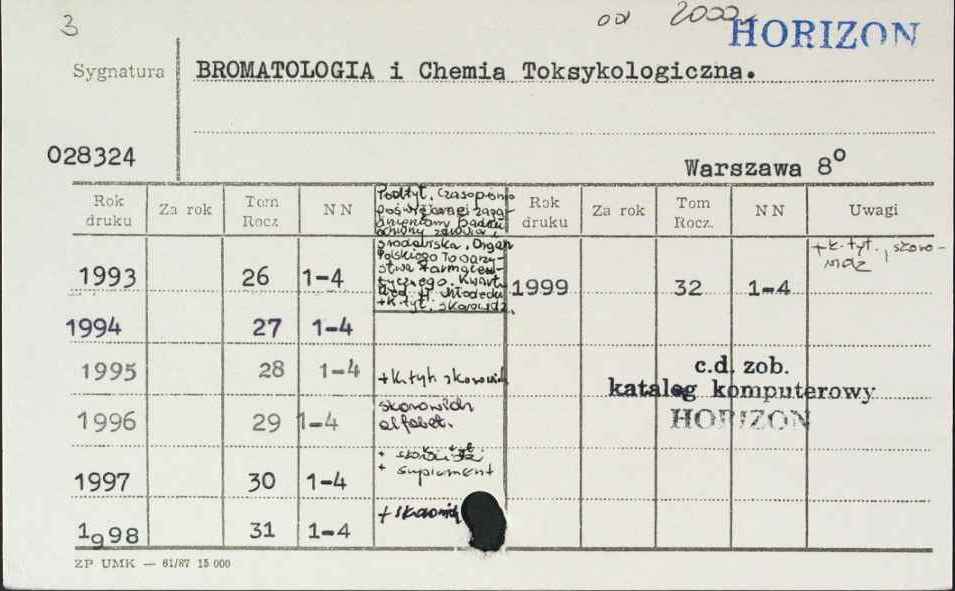 3
od 2000
HORIZON
Sygnatura
BROMATOLOGIA i Chemia Toksykologiczna.
028324
Warszawa 8⁰
Rok druku Za rok Tom Rocz. NN Rok druku Za rok Tom Rocz. NN Uwagi
Podtyt. Czasopismo
poświęcone zaga-
dnieniom badań
ochrony zdrowia i
środowiska. Organ
Polskiego Towarzy-
stwa Farmaceu-
tycznego. Kwart.
Red. H. Młodecki
+k.tyt., skorowidz.
1993 26 1-4
1999 32 1-4
+k.tyt., skoro-
widz
1994 27 1-4
1995 28 1-4 +k.tyt. skorowidz
1996 29 1-4 skorowidz
alfabet.
1997 30 1-4
+ suplement
1998 31 1-4 + skorowidz
c.d. zob.
katalog komputerowy
HORIZON
ZP UMK — 61/87 15 000